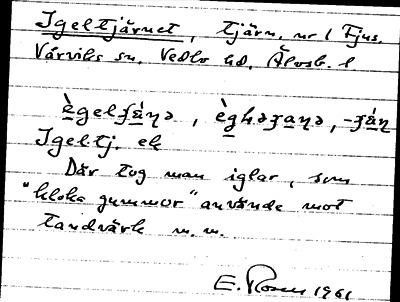 Igeltjärnet, tjärn, nr 1 Fjus.
Värviks sn. Vedbo hd. Älvsb. l
ègelʃáŋə, èghəʃaŋə, -ʃáŋ
Igeltj. ek
Där tog man iglar, som
"kloka gummor" använde mot
tandvärk m.m.
E. Rosen 1961